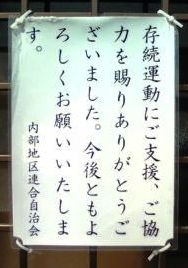 存続運動にご支援、ご協
力を賜りありがとうご
ざいました。今後ともよ
ろしくお願いいたしま
す。
内部地区連合自治会